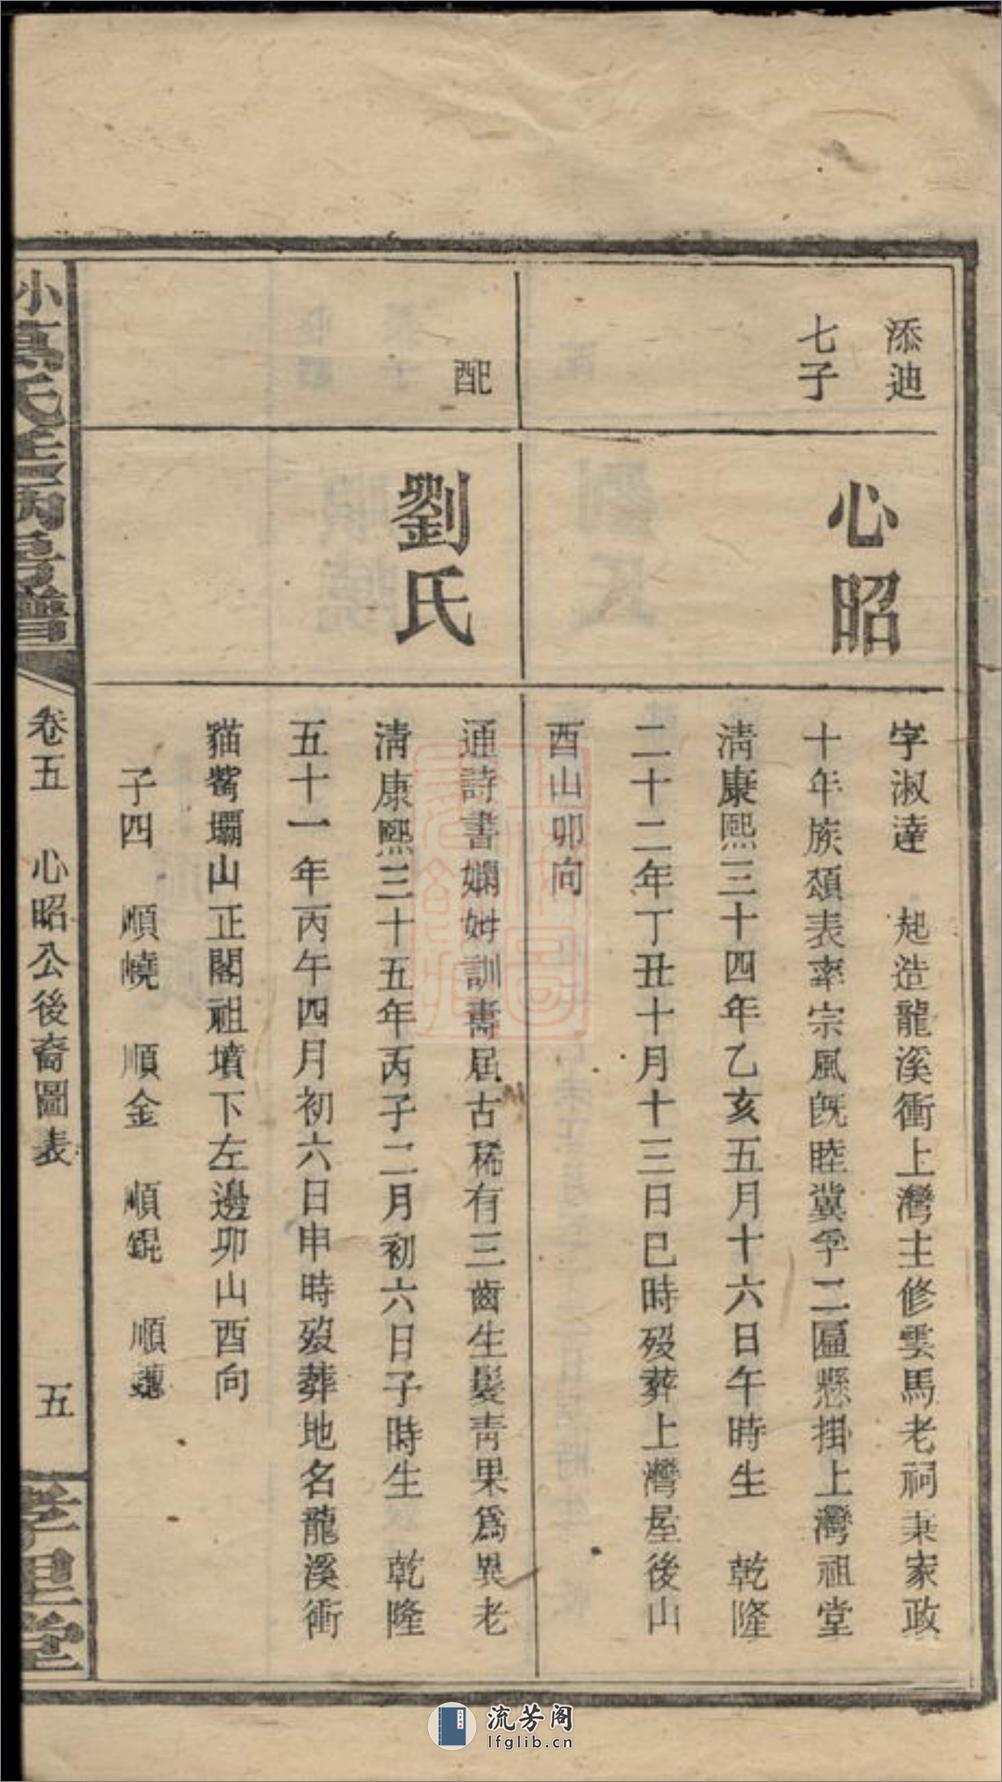 添迪
七子
心昭
字淑達　起造龍溪衝上灣主修雲馬老祠秉家政
十年族頌表率宗風旣睦冀孚二匾懸掛上灣祖堂
清康熙三十四年乙亥五月十六日午時生　乾隆
二十二年丁丑十月十三日巳時歿葬上灣屋後山
酉山卯向
配
劉氏
通詩書嫻姆訓壽届古稀有三齒生髮青果爲異老
清康熙三十五年丙子二月初六日子時生　乾隆
五十一年丙午四月初六日申時歿葬地名龍溪衝
猫嘴壩山正閣祖墳下左邊卯山酉向
子四　順嶢　順金　順錕　順
卷五　心昭公後裔圖表　五
流芳阁
lfglib.cn